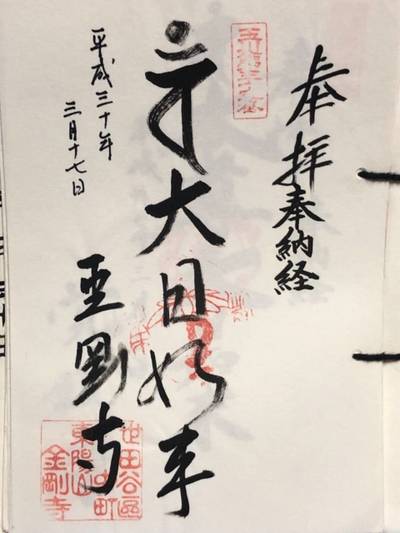 奉拝奉納経
大日如来
金剛寺
平成三十年
三月十七日
世田谷區
中町
東陽山
金剛寺